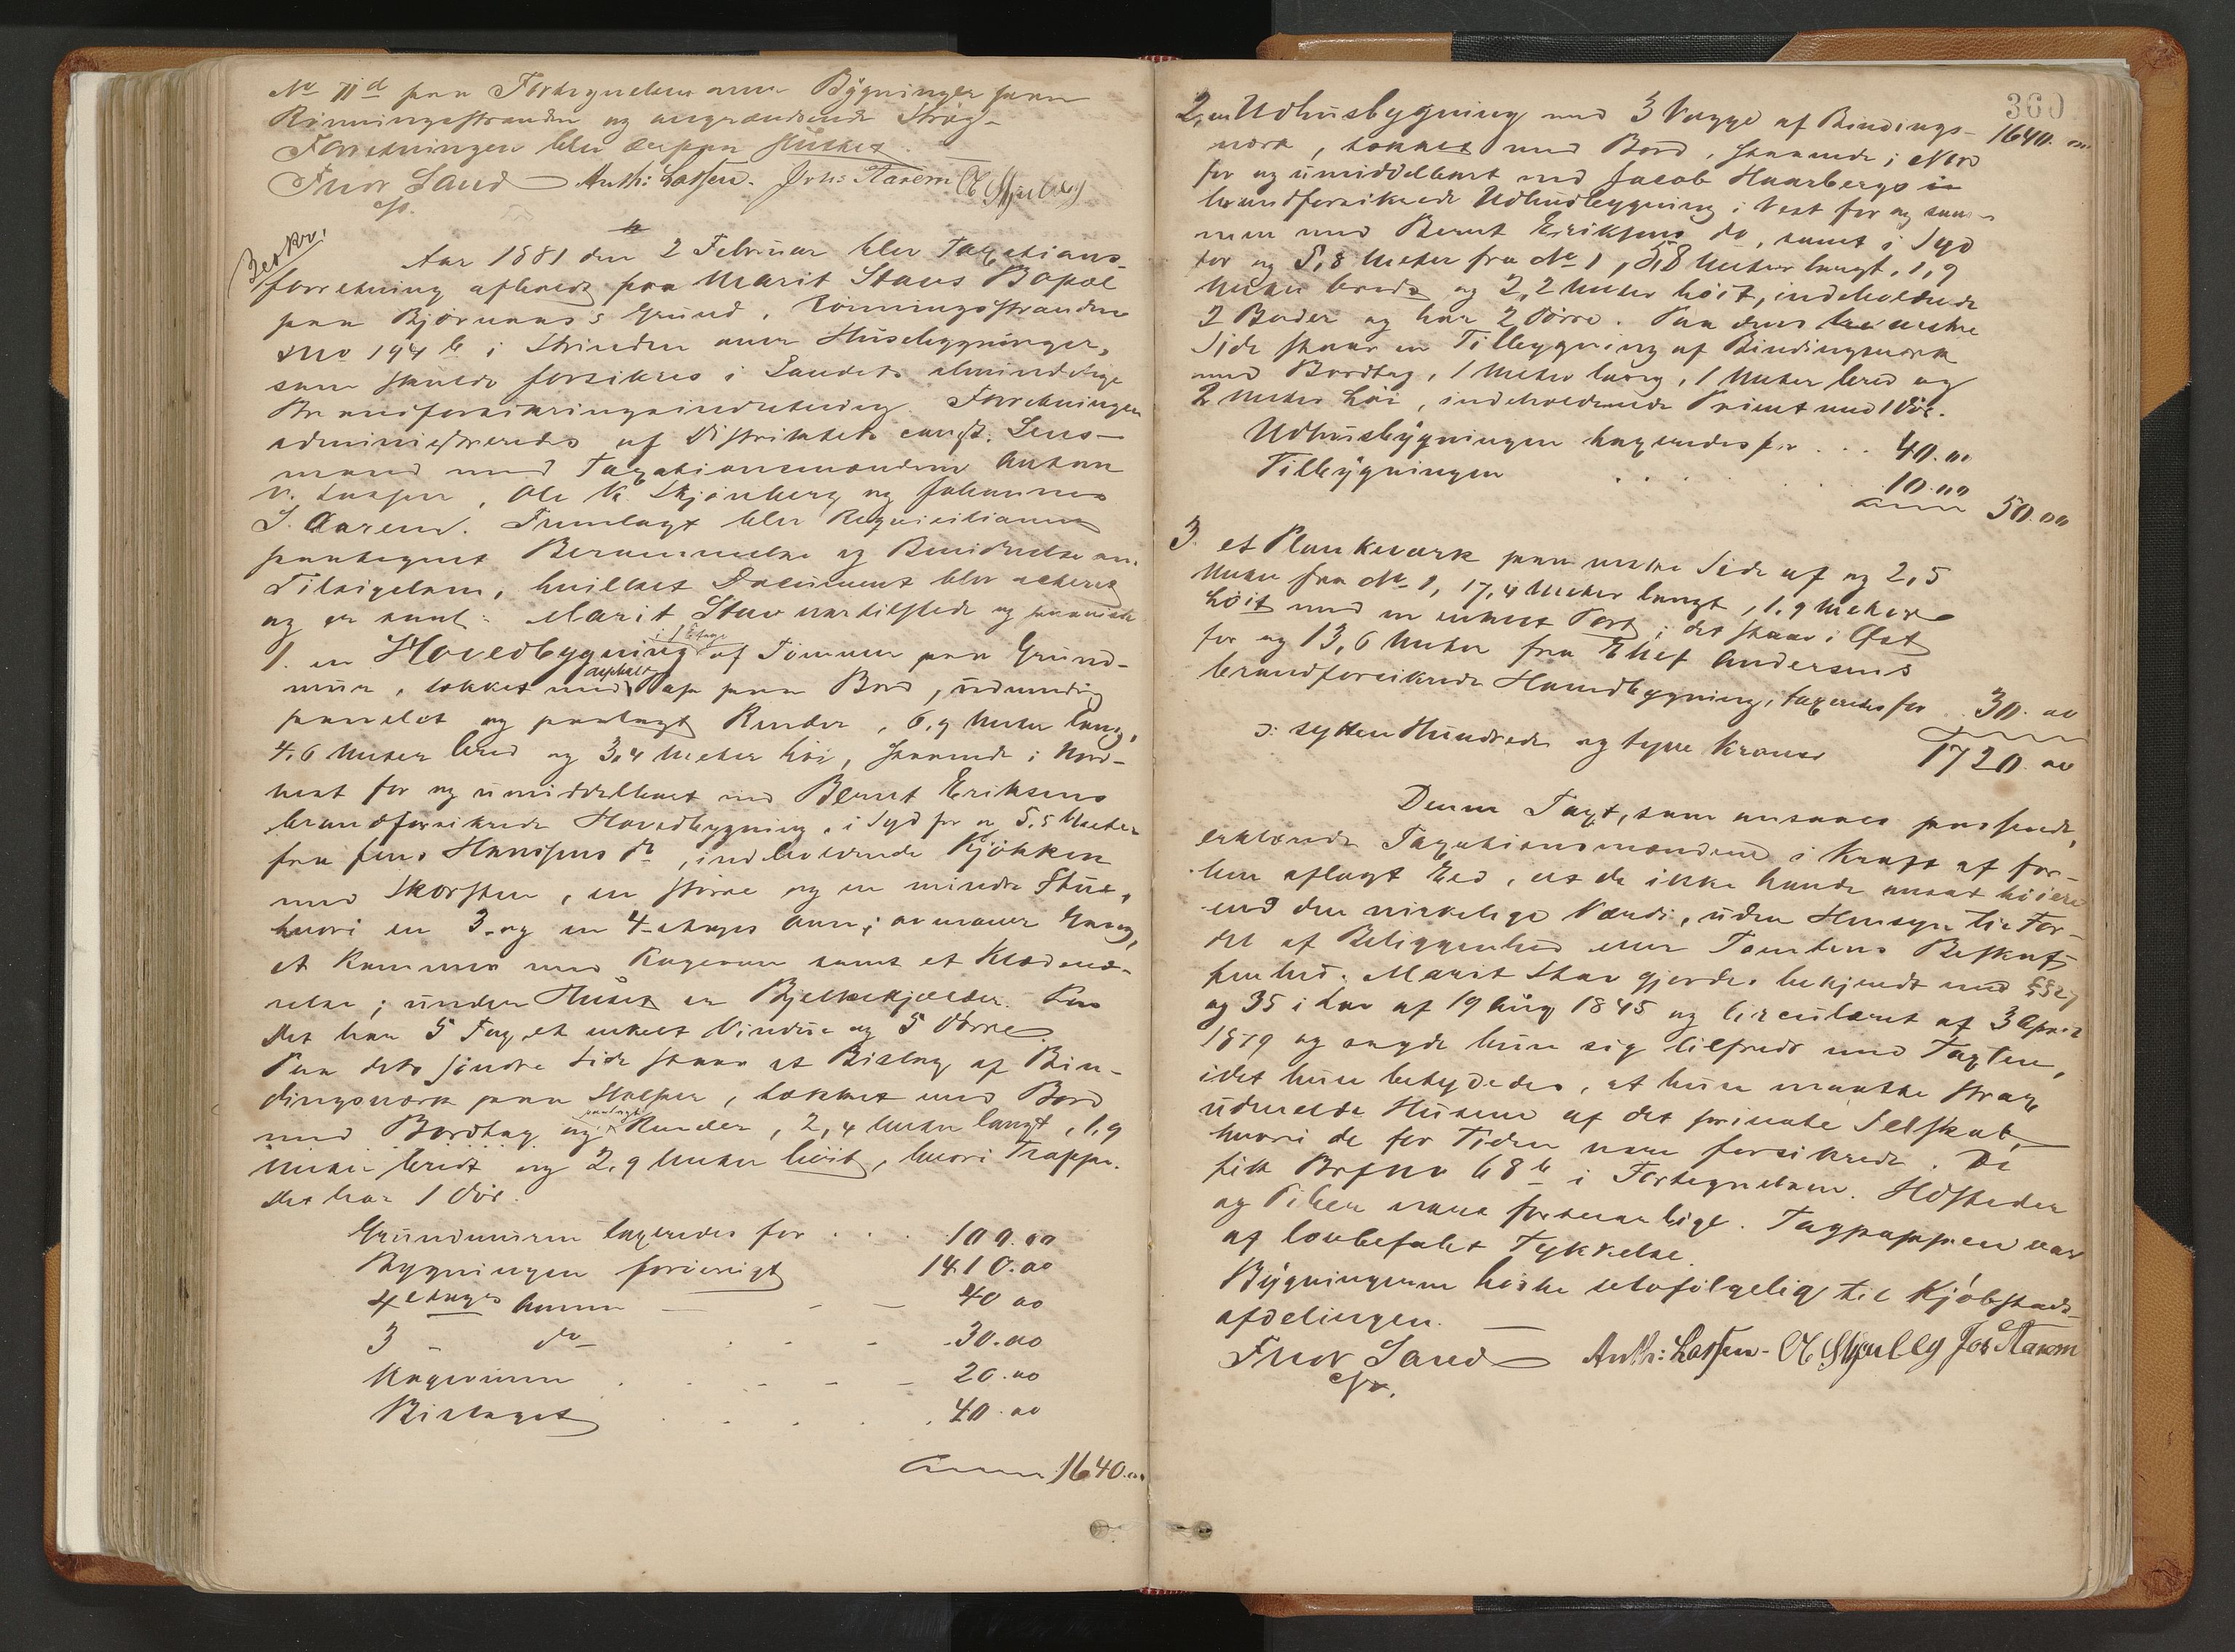 No 71d paa Fortegnelsen over Bygninger paa
Rønningsstranden og angrændsende Strøg.
Forretningen blev derpaa sluttet.
Fredr Sand Anth: Lassen. Johs Aarem OK Skjønberg
cst.
Beskr.
Aar 1881 den 2 Februar blev Taxations-
forretning afholdt paa Marit Staus Bopæl
paa Bjørnaas's Grund, Rønningsstranden
No 194 b i Strinden over Husebygninger,
som skulde forsikres i Landets almindelige
Brandforsikringsindretning. Forretningen
administreredes af Distriktets const. Lens-
mand med Taxationsmændene Anthon
N. Lassen, Ole K. Skjønberg og Johannes
S. Aarem. Fremlagt blev Requisitionen
paategnet Berammelse og Bevidnelse om
Tilsigelsen, hvilket Document blev acteret
og er saal: Marit Stav var tilstede og paaviste
1. en Hovedbygning i 1 Etage af Tømmer paa Grund-
mur, tækket med asphalt Pap paa Bord, udvendig
panelet og paalagt Render, 6,9 Meter lang,
4,6 Meter bred og 3,4 Meter høi, staaende i Nord-
vest for og umiddelbart ved Bernt Eriksens
brandforsikrede Hovedbygning, i Syd for og 5,5 Meter
fra Jens Hansens do, indeholdende Kjøkken
med Skorsten, en større og en mindre Stue,
hvori en 3- og en 4-etages Ovn; ovenover Gang,
et Kammer med Kogeovn samt et Klædevæ-
relse; under Huset er Bjelkekjælder.
Det har 5 Fag, et enkelt Vindue og 5 Dørre.
Paa dets søndre Side staar et Bislag af Bin-
dingsværk paa Stolper, tækket med Bord
med Bordtag og paalagt Render, 2,4 Meter langt, 1,9
Meter bredt og 2,9 Meter høit, hvori Trappe.
Det har 1 Dør.
Grundmuren taxeredes for . . . 100.00
Bygningen forøvrigt 1410.00
4 etages Ovnen — - — 40 00
3 - do . . - 30.00
Kogeovnen . . - - — 20.00
Bislaget . . . . . 40.00
1640.00
360
1640.
2, en Udhusbygning med 3 Vægge af Bindings-
værk, tækket med Bord, staaende i Nord
for og umiddelbart ved Jacob Haarbergs
brandforsikrede Udhusbygning, i Vest for og sam-
men med Bernt Eriksens do, samt i Syd
for og 5,8 Meter fra No 1, 5,8 Meter langt, 1,9
Meter bredt og 2,2 Meter høit, indeholdende
2 Boder og har 2 Dørre. Paa dens vestre
Side staar en Tilbygning af Bindingsværk
med Bordtag, 1 Meter lang, 1 Meter bred og
2 Meter høi, indeholdende Privet med 1 Dør.
Udhusbygningen taxeredes for . . . 40.00
Tilbygningen . . . . 10.00
50.00
3. et Plankeværk paa vestre Side af og 2,5
Meter fra No 1, 17,4 Meter langt, 1,9 Meter
høit med en enkelt Port; det staar i Øst
for og 13,6 Meter fra Ellef Andersens
brandforsikrede Hovedbygning, taxeredes for 30.00
ɔ: sytten Hundrede og tyve Kroner 1720.00
Denne Taxt, som ansaaes passende,
erklærede Taxationsmændene i Kraft af for-
hen aflagt Eed, at de ikke havde ansat høiere
end den virkelige Værdi, uden Hensyn til For-
del af Beliggenhed eller Tomtens Beskaf-
fenhed. Marit Stav gjordes bekjendt med §§27
og 35 i Lov af 19 Aug 1845 og Circulæret af 3 April
1879 og sagde hun sig tilfreds med Taxten,
idet hun betydedes, at hun maatte strax
udmelde Husene af det private Selskab,
hvori de for Tiden vare forsikrede. De
fik Brfno 68 b i Fortegnelsen. Ildsteder
og Piben vare forsvarlige. Tagpappen var
af lovbefalet Tykkelse.
Bygningerne høre selvfølgelig til Kjøbstads-
afdelingen.
Fredr Sand Anth: Lassen - OK Skjønberg Johs Aarem
cst.